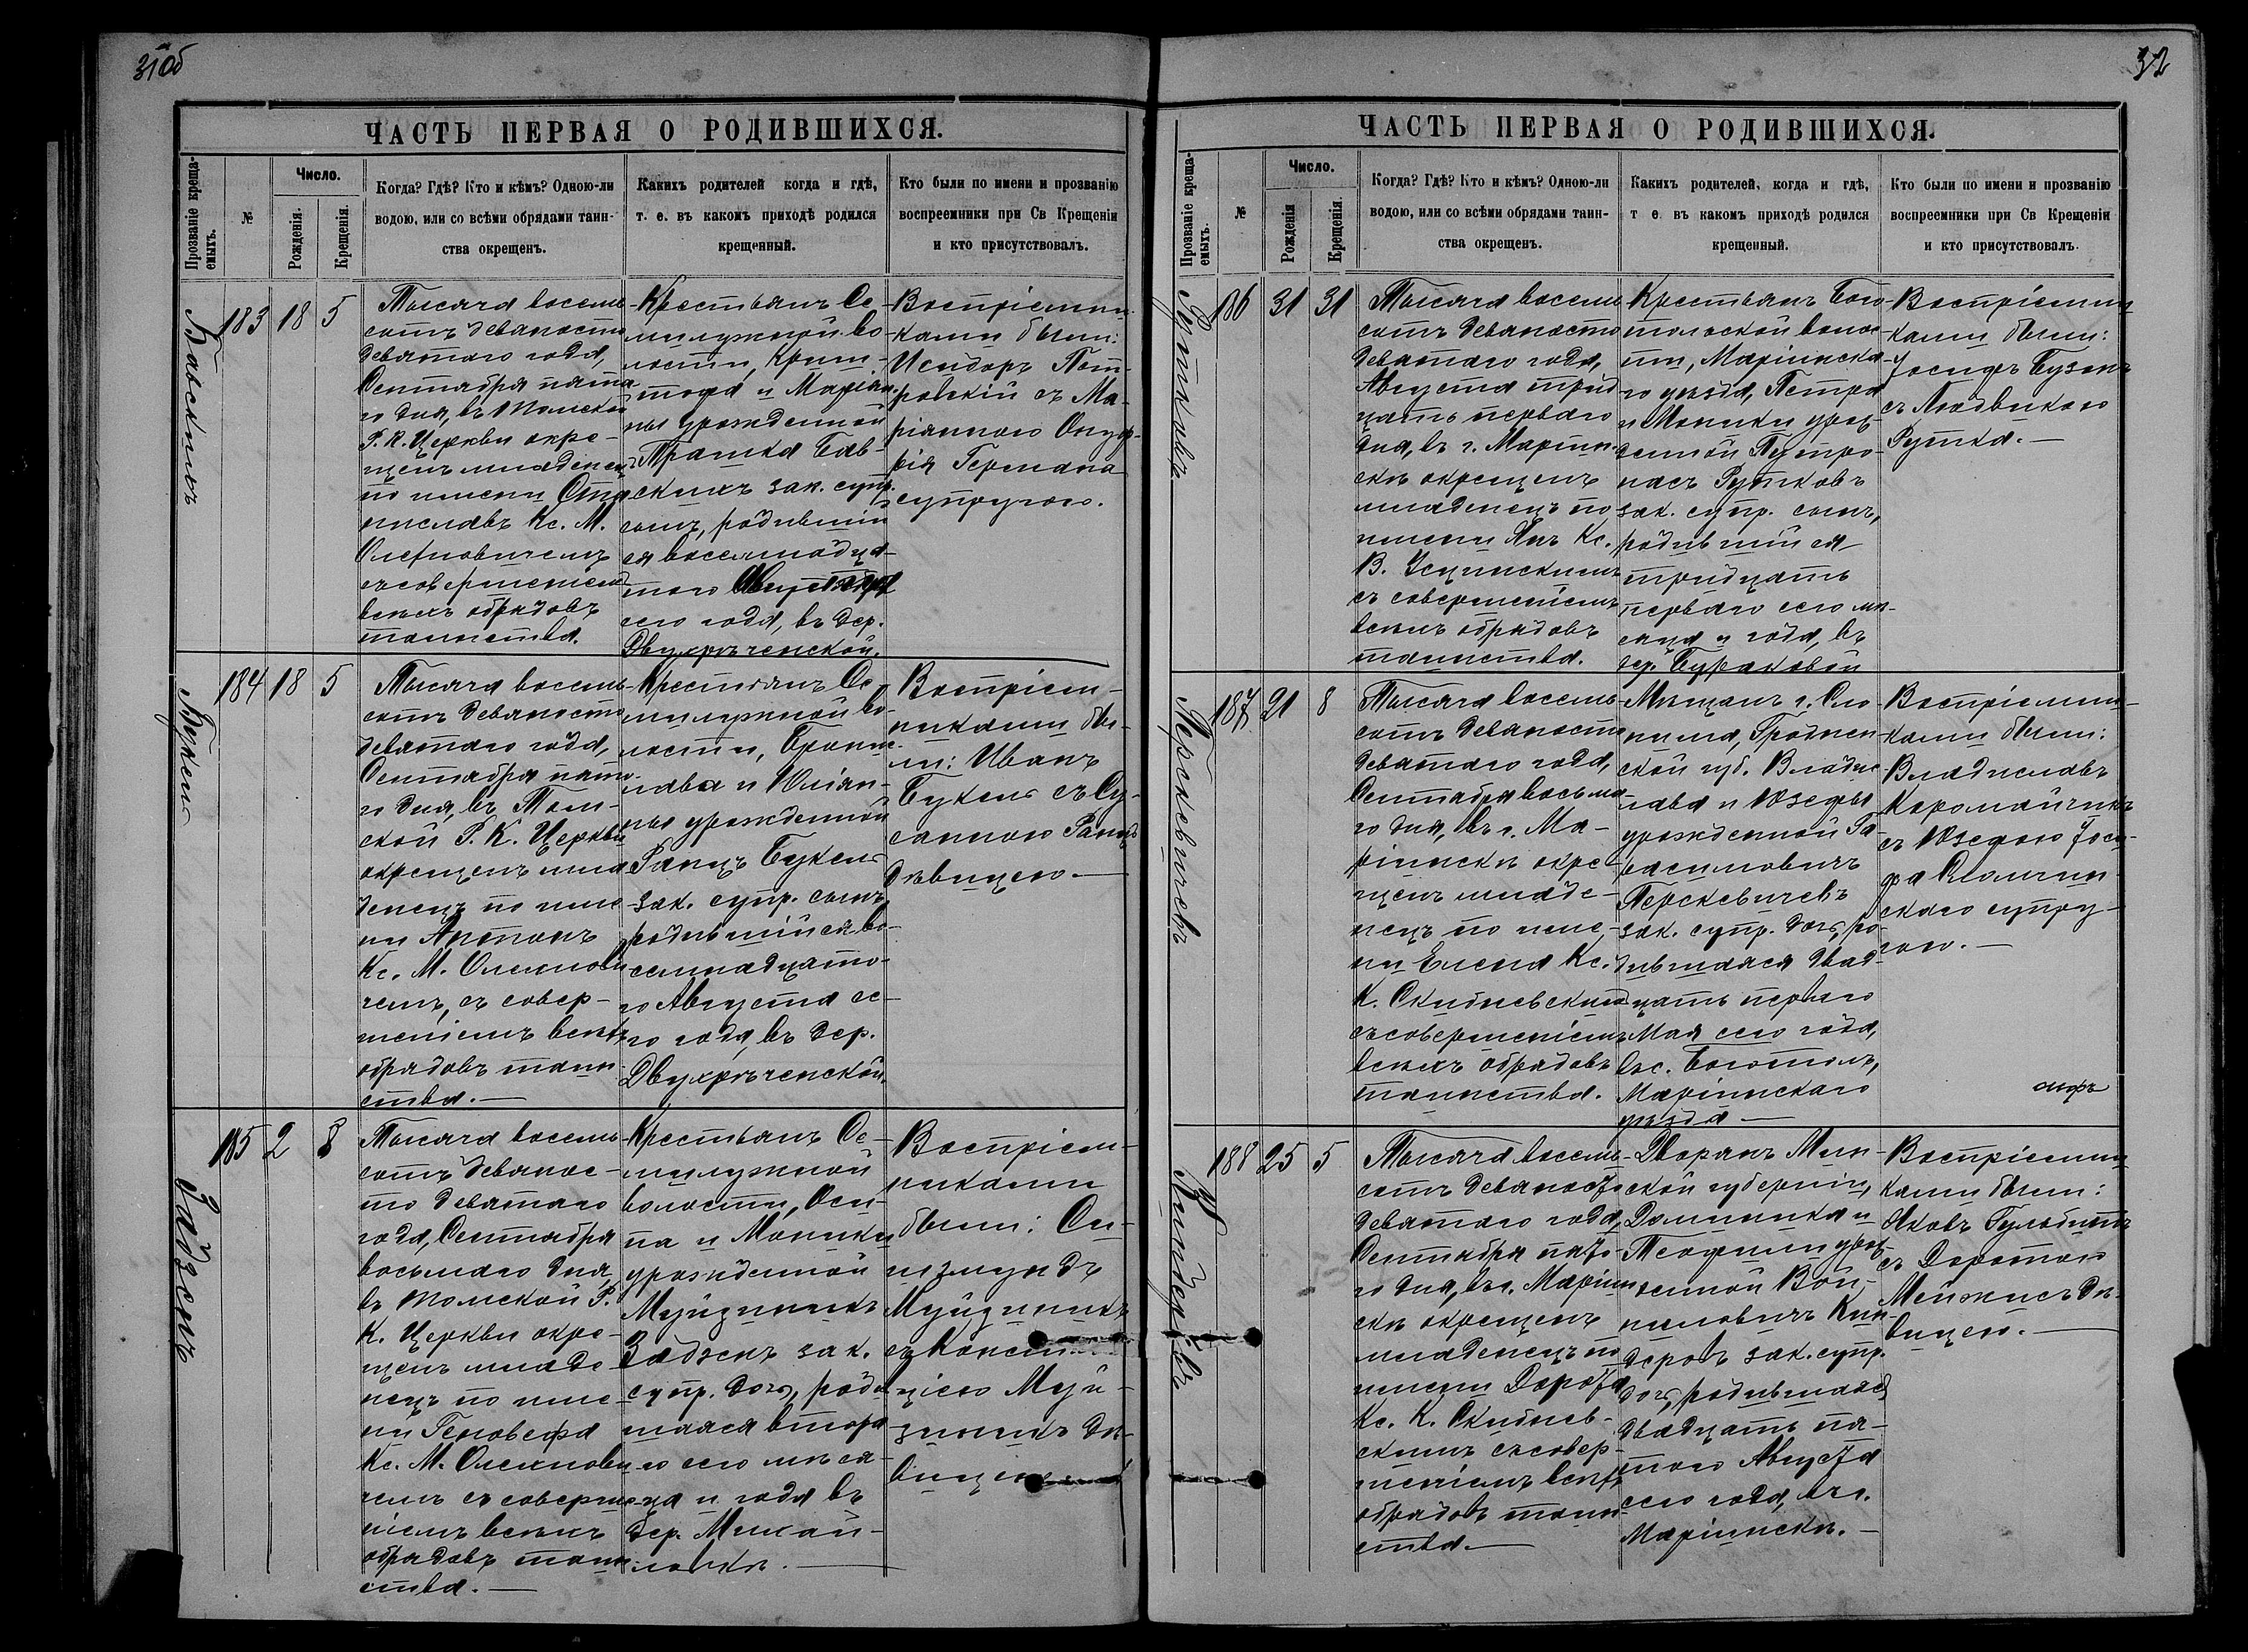 31об
ЧАСТЬ ПЕРВАЯ О РОДИВШИХСЯ.
Прозваніе креща-
емыхъ.
№
Число.
Рожденія.
Крещенія.
Когда? Гдѣ? Кто и кѣмъ? Одною-ли
водою, или со всѣми обрядами таин-
ства окрещенъ.
Какихъ родителей когда и гдѣ,
т. е. въ какомъ приходѣ родился
крещенный.
Кто были по имени и прозванію
воспреемники при Св Крещеніи
и кто присутствовалъ.
Бавскихъ
183 18 5
Тысяча восемь
сотъ девяносто
девятаго года,
Сентября пята
го дня, въ Томской
Р. К. Церкви окре-
щенъ младенецъ
по имени Ста
ниславъ Кс. М.
Олехновичемъ
съ совершеніемъ
всѣхъ обрядовъ
таинства.
Крестьянъ Се-
милужной во
лости, Криш-
тофа и Маріан
ны урожденной
Трашка Бав-
скихъ зак. супр.
сынъ, родившій
ся восемнадца-
таго Августа
сего года, въ дер.
Двухрѣченской.
Воспріемни-
ками были:
Исидоръ Пет-
ровскій съ Ма-
ріанною Онуф-
рія Германа
супругою.
Букель
184 18 5
Тысяча восемь
сотъ девяносто
девятаго года,
Сентября пята-
го дня, въ Том-
ской Р. К. Церкви
окрещенъ мла
денецъ по име
ни Антонъ
Кс. М. Олехнови
чемъ, съ совер-
шеніемъ всѣхъ
обрядовъ таин-
ства.
Крестьянъ Се-
милужной во-
лости, Бронис-
лава и Юліан-
ны урожденной
Ранцъ Букель
зак. супр. сынъ,
родившійся во-
семнадцата-
го Августа се-
го года, въ дер.
Двухрѣченской.
Воспріем-
никами бы-
ли: Иванъ
Букель съ Су-
санною Ранцъ
дѣвицею.
Задзенъ
185 2 8
Тысяча восемь
сотъ девянос-
то девятаго
года, Сентября
восьмаго дня,
въ Томской Р.
К. Церкви окре-
щенъ младе
нецъ по име-
ни Геновефа
Кс. М. Олехнови
чемъ съ соверше
ніемъ всѣхъ
обрядовъ таин
ства.
Крестьянъ Се-
милужной
волости, Оси-
па и Моники
урожденной
Муйзиникъ
Задзенъ зак.
супр. дочь, родив
шаяся втора
го сего мѣся-
ца и года въ
дер. Михай-
ловкѣ.
Воспріем-
никами
были: Си-
гизмундъ
Муйзиникъ
съ Констан
ціею Муй-
зиникъ дѣ-
вицею
32
ЧАСТЬ ПЕРВАЯ О РОДИВШИХСЯ.
Прозваніе креща-
емыхъ.
№
Число.
Рожденія
Крещенія.
Когда? Гдѣ? Кто и кѣмъ? Одною-ли
водою, или со всѣми обрядами таин-
ства окрещенъ.
Какихъ родителей, когда и гдѣ,
т е. въ какомъ приходѣ родился
крещенный.
Кто были по имени и прозванію
воспреемники при Св Крещеніи
и кто присутствовалъ.
Рутковъ
186 31 31
Тысяча восемь
сотъ девяносто
девятаго года,
Августа трид
цать перваго
дня, въ г. Маріин-
скѣ окрещенъ
младенецъ по
имени Янъ Кс.
В.
съ совершеніемъ
всѣхъ обрядовъ
таинства.
Крестьянъ Бого-
тольской волос-
ти, Маріинска-
го уѣзда, Петра
и Моники урож
денной Путро-
насъ Рутковъ
зак. супр. сынъ,
родившійся
тридцать
перваго сего мѣ-
сяца и года, въ
дер. Бураковой
Воспріемни
ками были:
Іосифъ Бузенъ
съ Людвикою
Рутка.
Перскевичевъ
187 21 8
Тысяча восемь
сотъ девяносто
девятаго года,
Сентября восьма-
го дня, въ г. Ма-
ріинскѣ окре-
щенъ младе-
нецъ по име-
ни Елена Кс.
К. Скибневскимъ
съ совершеніемъ
всѣхъ обрядовъ
таинства.
Мѣщанъ г. Сло
нима, Гроднен
ской губ. Владис
лава и Юзефы
урожденной Га-
расимовичъ
Перскевичевъ
зак. супр. дочь, ро-
дившаяся двад-
цать перваго
Мая сего года,
въ с. Боготолъ,
Маріинскаго
уѣзда
Воспріемни-
ками были:
Владиславъ
Каромайчикъ
съ Юзефою Іоси-
фа
скаго супру-
гою.
Киндеровъ
188 25 5
Тысяча восемь
сотъ девяносто
девятаго года,
Сентября пята-
го дня, въ г. Маріин
скѣ окрещенъ
младенецъ по
имени Дорота
Кс. К. Скибнев-
скимъ съ совер-
шеніемъ всѣхъ
обрядовъ таин
ства.
Дворянъ Мин-
ской губерніи,
Доминика и
Теофили урож-
денной Вой-
ниловичъ Кин
деровъ зак. супр.
дочь, родившаяся
двадцать пя-
таго Августа
сего года, въ г.
Маріинскѣ.
Воспріемни
ками были:
Яковъ
съ Доротою
Мейжисъ дѣ-
вицею.